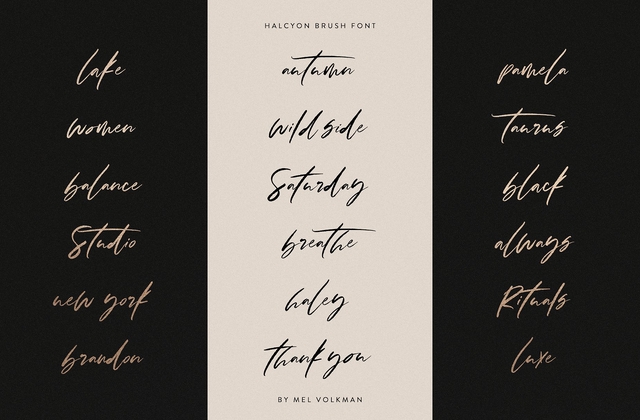 HALCYON BRUSH FONT
lake
women
balance
Studio
new york
brandon
autumn
wild side
Saturday
breathe
haley
thank you
pamela
Taurus
black
always
Rituals
luxe
BY MEL VOLKMAN